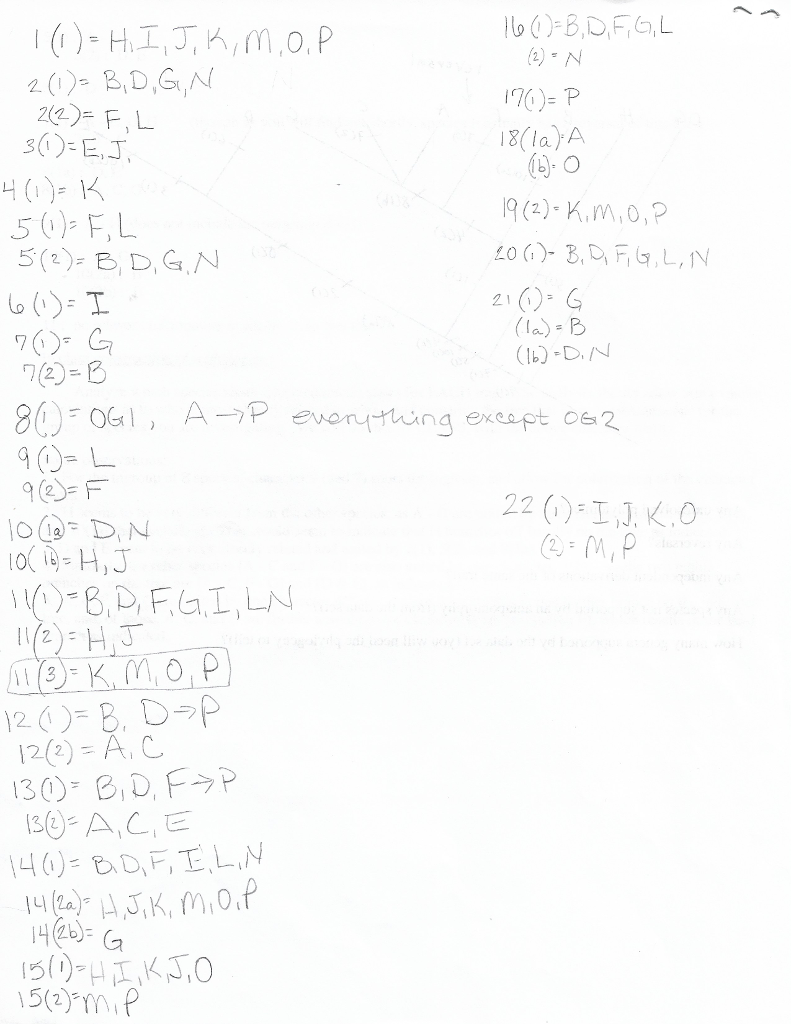 1(1) = H, I, J, K, M, O, P
2(1) = B, D, G, N
2(2) = F, L
3(1) = E, J.
4(1) = K
5(1) = F, L
5(2) = B, D, G, N
6(1) = I
7(1) = G
7(2) = B
8(1) = OG1, A → P everything except OG2
9(1) = L
9(2) = F
10(1a) = D, N
10(1b) = H, J
11(1) = B, D, F, G, I, L N
11(2) = H, J
11(3) = K, M, O, P
12(1) = B, D → P
12(2) = A, C
13(1) = B, D, F → P
13(2) = A, C, E
14(1) = B, D, F, I, L, N
14(2a) = H, J, K, M, O, P
14(2b) = G
15(1) = H, I, K, J, O
15(2) = M, P
16(1) = B, D, F, G, L
(2) = N
17(1) = P
18(1a) = A
(1b) = O
19(2) = K, M, O, P
20(1) = B, D, F, G, L, N
21(1) = G
(1a) = B
(1b) = D, N
22(1) = I, J, K, O
(2) = M, P